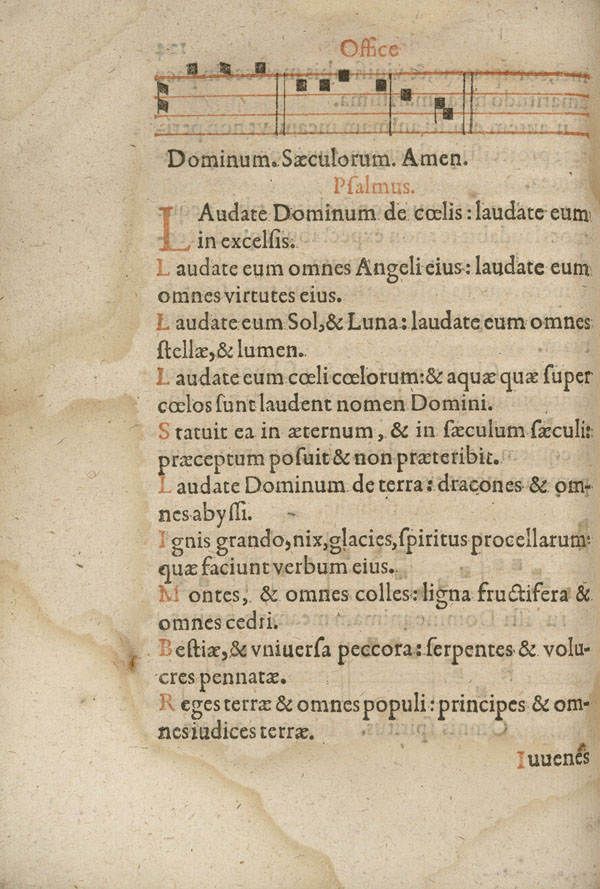 Office
Dominum. Sæculorum. Amen.
Psalmus.
LAudate Dominum de cœlis: laudate eum
in excelsis.
Laudate eum omnes Angeli eius: laudate eum
omnes virtutes eius.
Laudate eum Sol, & Luna: laudate eum omnes
stellæ, & lumen.
Laudate eum cœli cœlorum: & aquæ quæ super
cœlos sunt laudent nomen Domini.
Statuit ea in æternum, & in sæculum sæculi:
præceptum posuit & non præteribit.
Laudate Dominum de terra: dracones & om-
nes abyssi.
Ignis grando, nix, glacies, spiritus procellarum:
quæ faciunt verbum eius.
Montes, & omnes colles: ligna fructifera &
omnes cedri.
Bestiæ, & vniuersa peccora: serpentes & volu-
cres pennatæ.
Reges terræ & omnes populi: principes & om-
nes iudices terræ.
Iuuenes